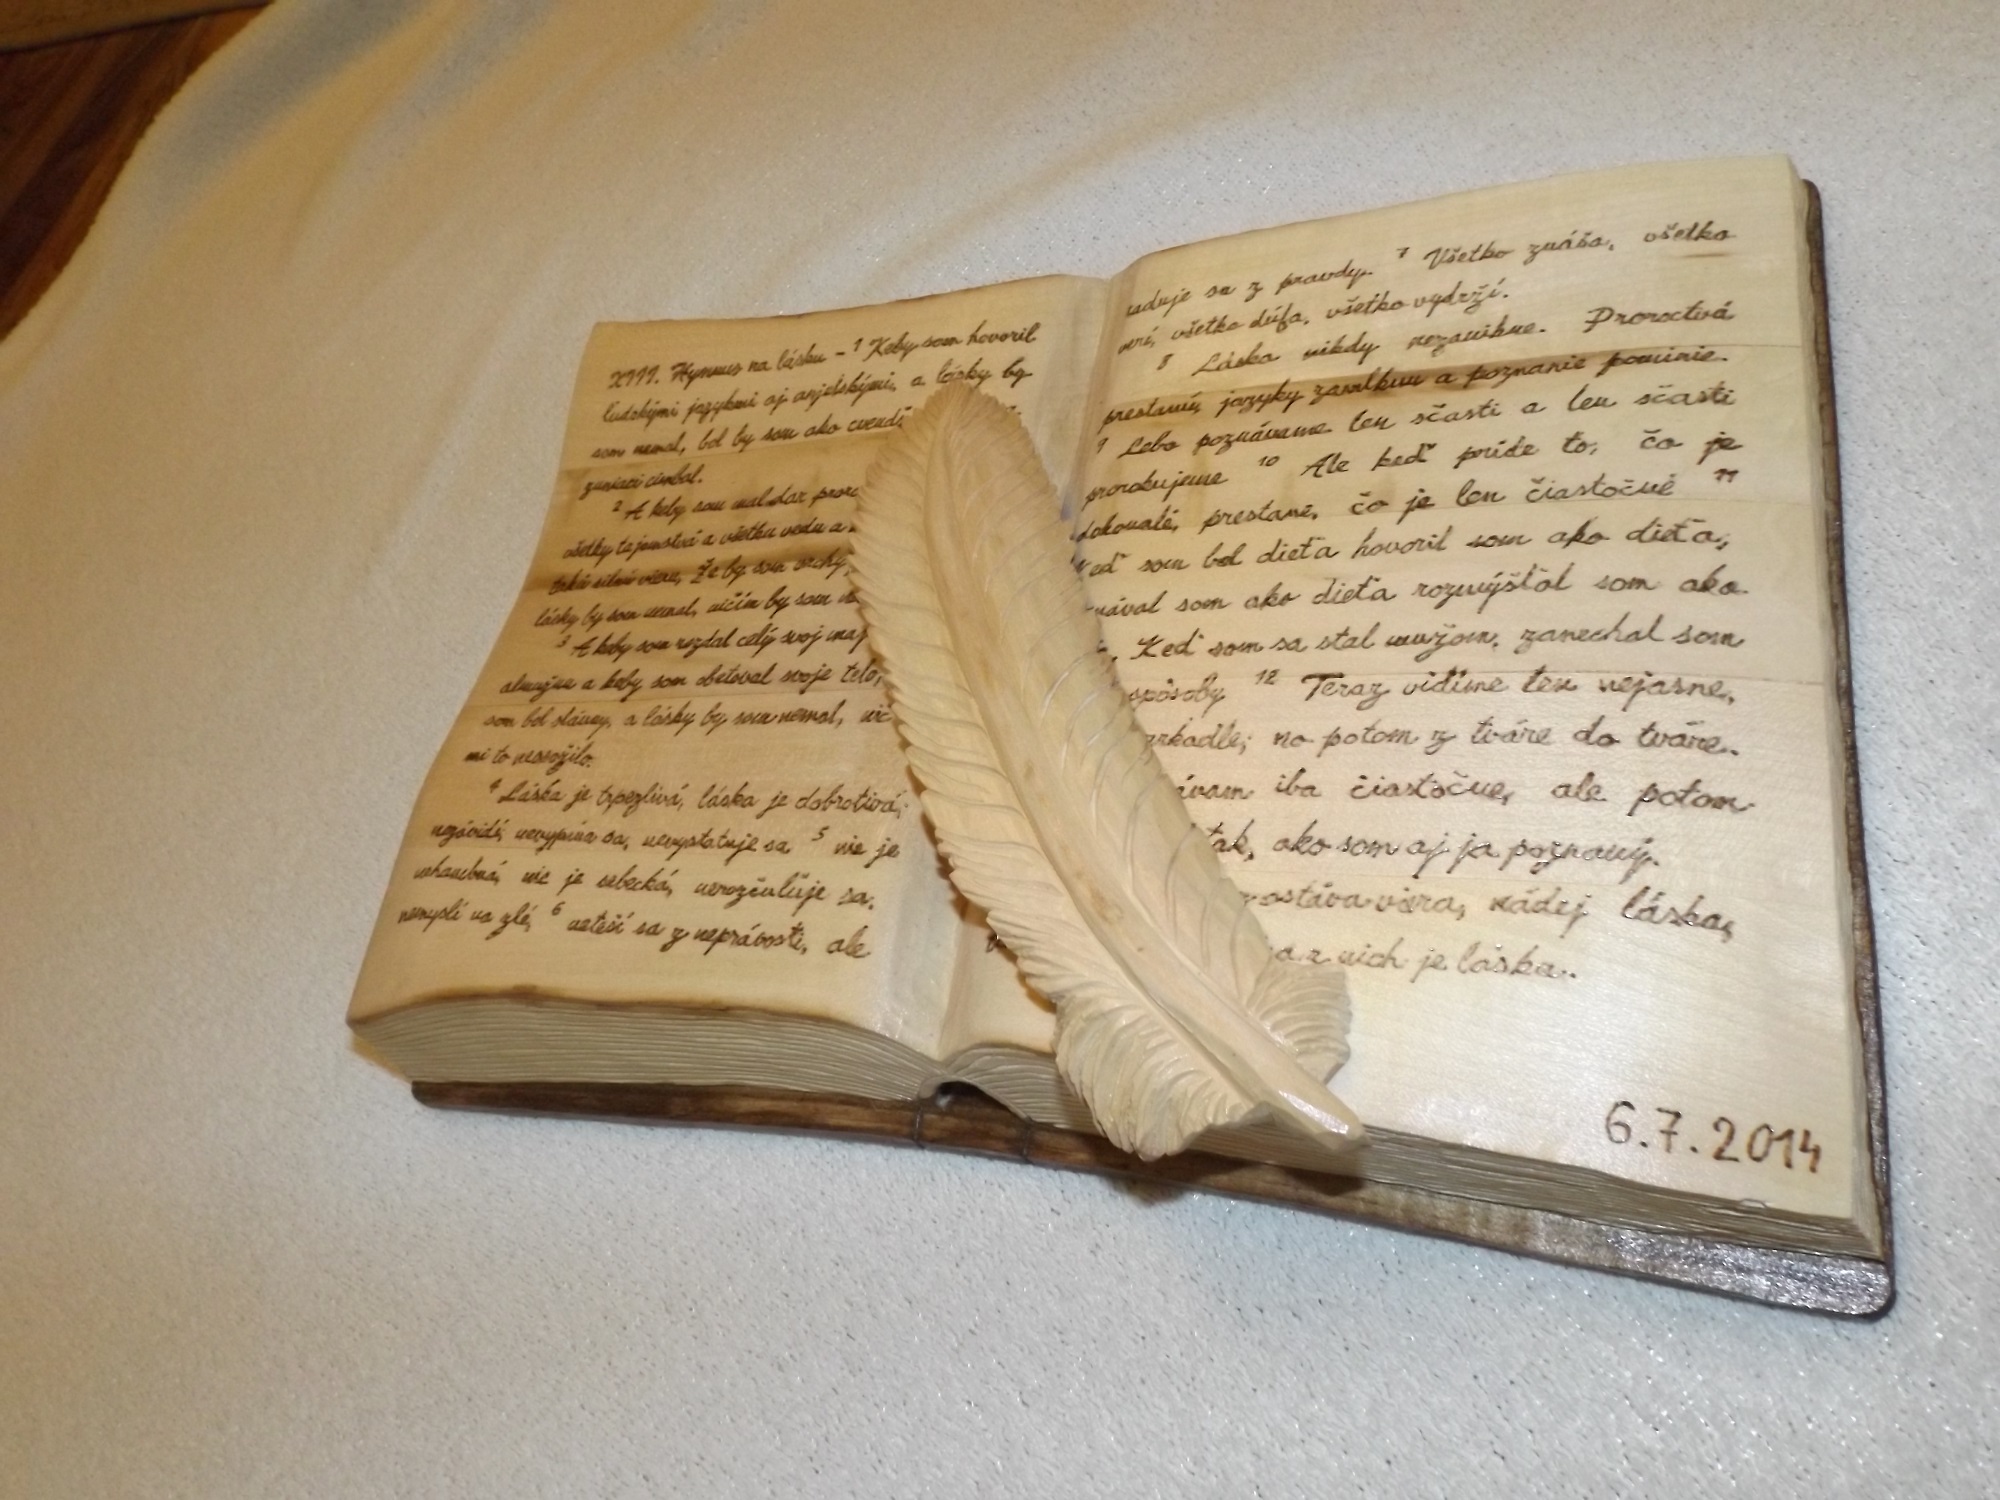 XIII. Hymnus na lásku - 1 Keby som hovoril
ľudskými jazykmi aj anjelskými, a lásky by
som nemal, bol by som ako cvendž
zuniaci cimbal.
2 A keby som mal dar proro
všetky tajomstvá a všetku vedu a
takú silnú vieru, že by som vrchy
lásky by som nemal, ničím by som ne
3 A keby som rozdal celý svoj maj
almužnu a keby som obetoval svoje telo,
som bol slávny, a lásky by som nemal, nič
mi to neosožilo.
4 Láska je trpezlivá, láska je dobrotivá;
nezávidí, nevypína sa, nevystatuje sa 5 nie je
nehanebná, nie je sebecká, nerozčuľuje sa,
nemyslí na zlé, 6 neteší sa z neprávosti, ale
raduje sa z pravdy. 7 Všetko znáša, všetko
verí, všetko dúfa, všetko vydrží.
8 Láska nikdy nezanikne. Proroctvá
prestanú, jazyky zamĺknu a poznanie pominie.
9 Lebo poznávame len sčasti a len sčasti
prorokujeme 10 Ale keď príde to, čo je
dokonalé, prestane, čo je len čiastočné 11
Keď som bol dieťa hovoril som ako dieťa,
som ako dieťa rozmýšľal som ako
Keď som sa stal mužom, zanechal som
spôsoby 12 Teraz vidíme len nejasne,
zrkadle; no potom z tváre do tváre.
ávam iba čiastočne, ale potom
tak, ako som aj ja poznaný.
zostáva viera, nádej láska,
a z nich je láska.
6.7.2014